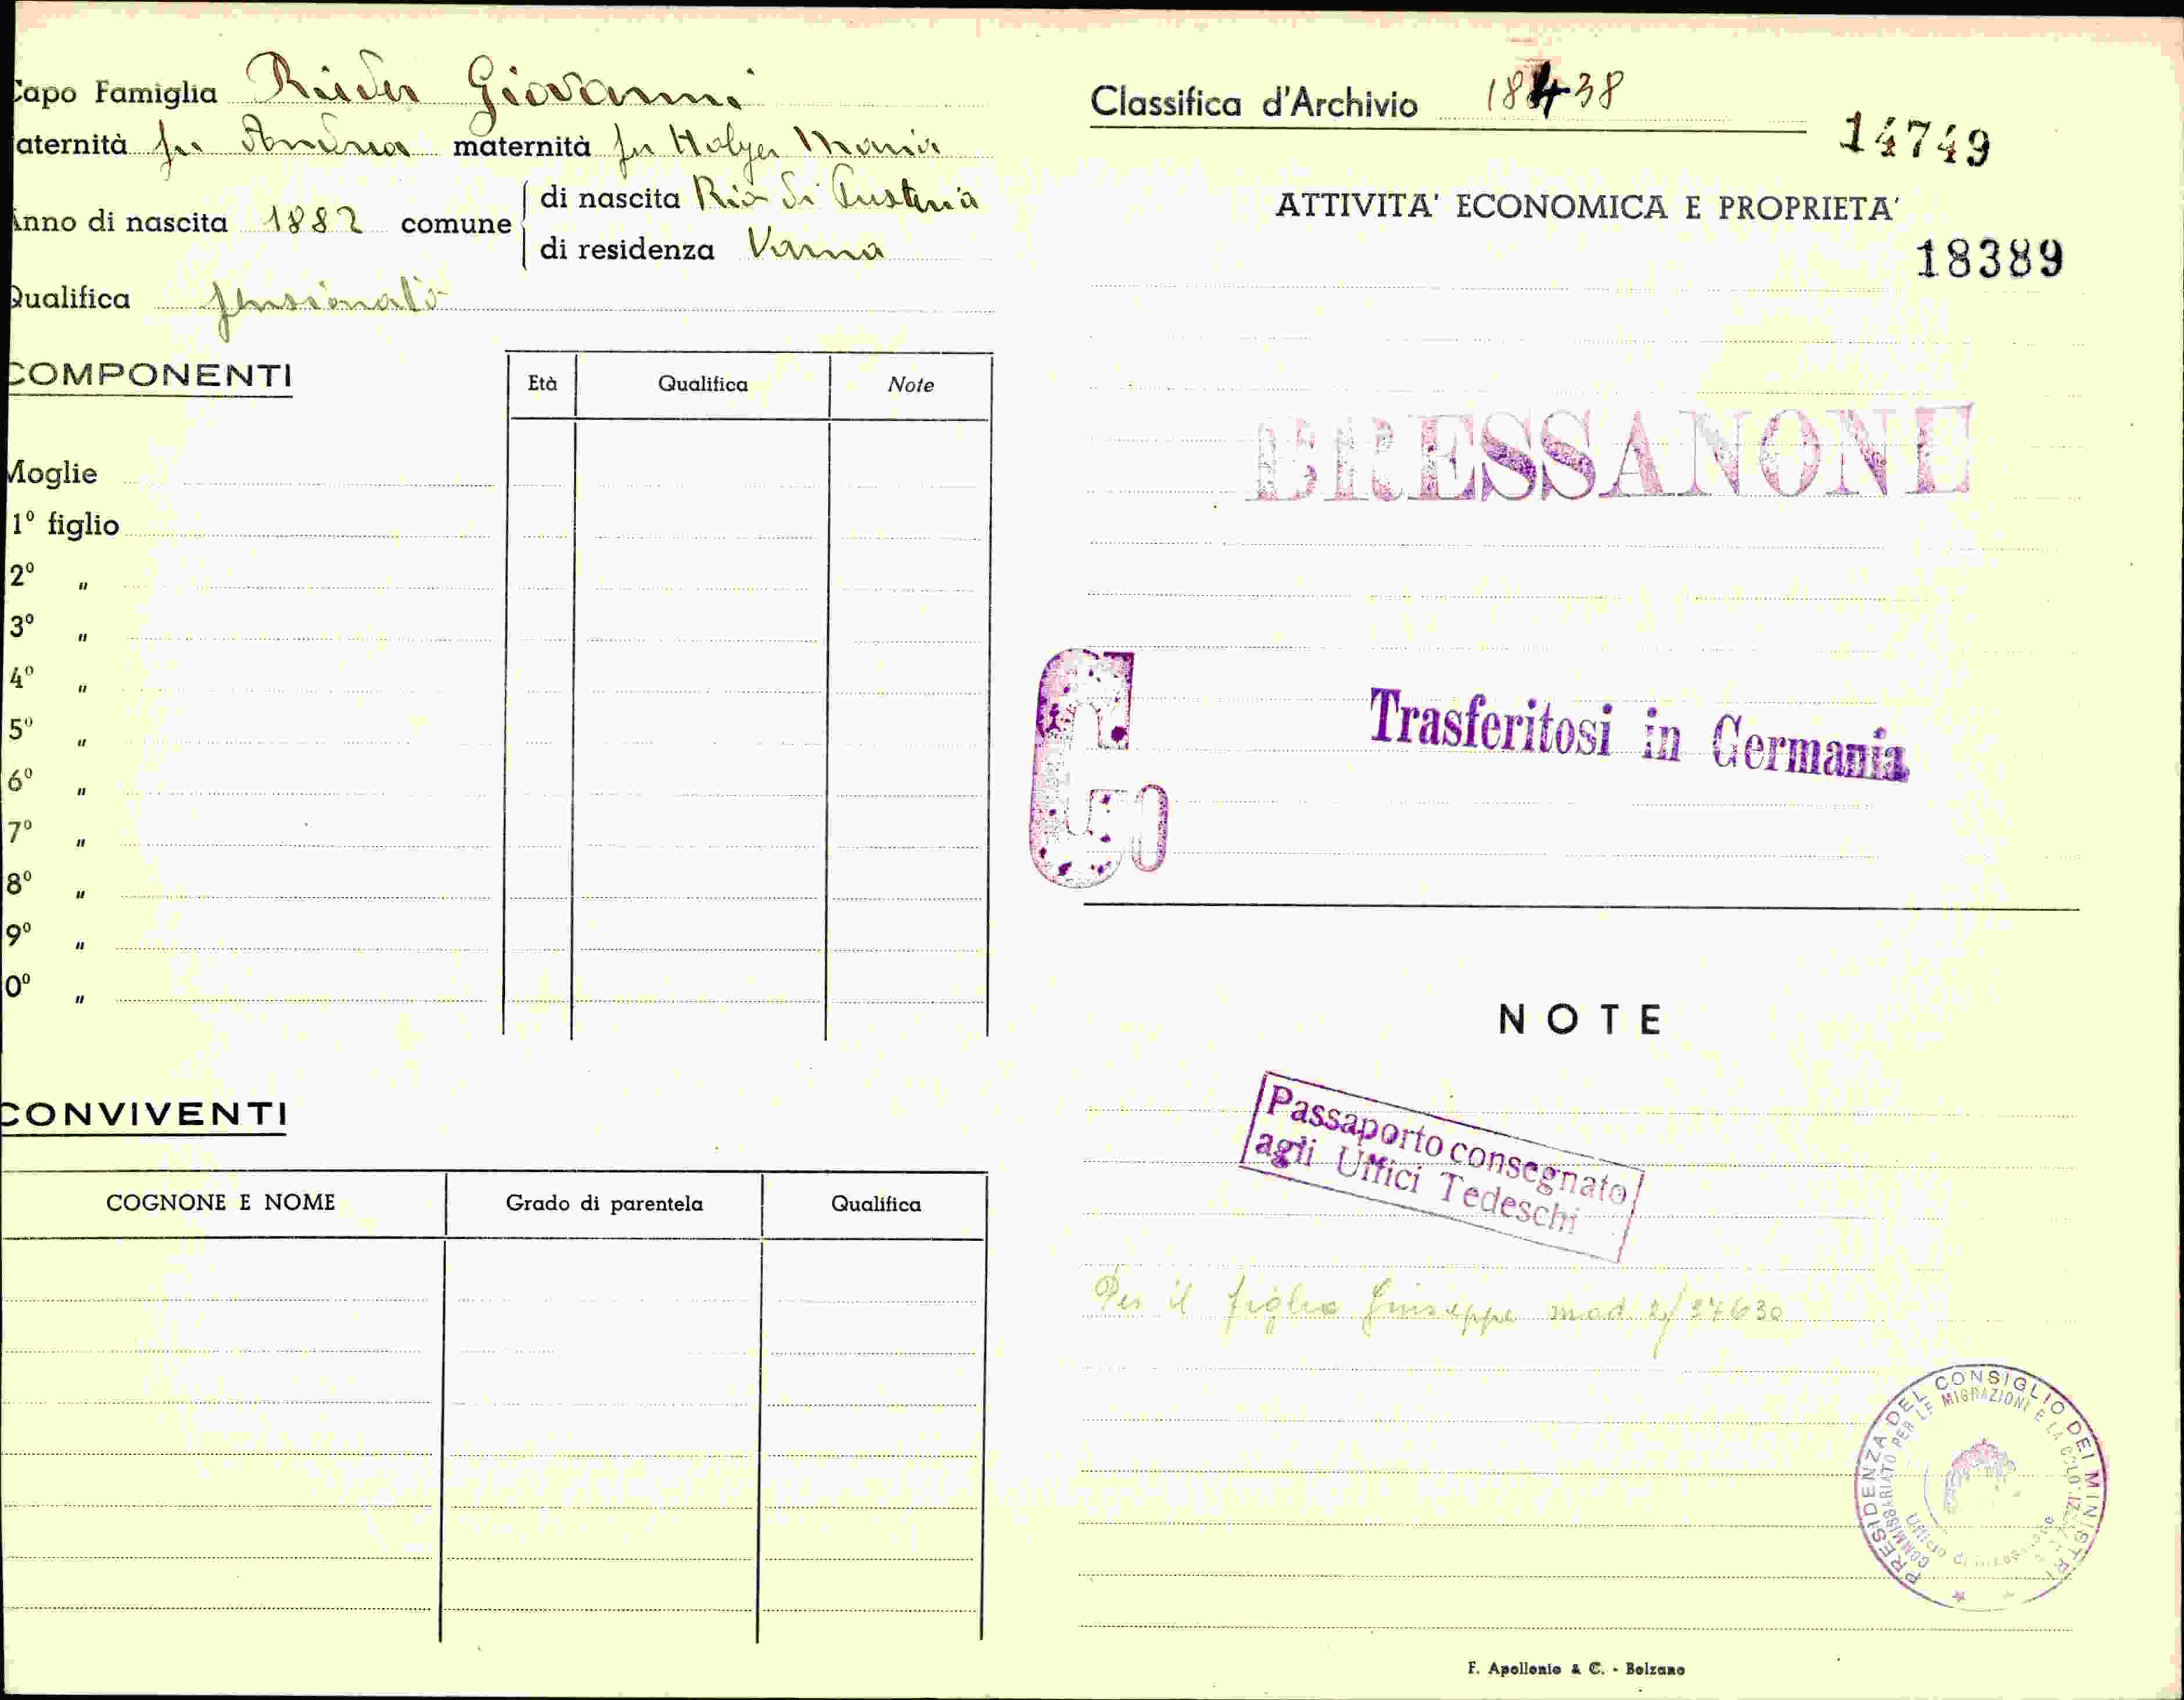 Capo Famiglia Rieder Giovanni
aternità fu Andrea maternità fu Holzer Maria
Anno di nascita 1882 comune di nascita Rio di Pusteria
di residenza Varna
Qualifica pensionato
COMPONENTI
Età Qualifica Note
Moglie
1º figlio
2º "
3º "
4º "
5º "
6º "
7º "
8º "
9º "
0º "
CONVIVENTI
COGNONE E NOME Grado di parentela Qualifica
Classifica d'Archivio 18438
14749
ATTIVITA' ECONOMICA E PROPRIETA'
18389
BRESSANONE
G
Trasferitosi in Germania
NOTE
Passaporto consegnato
agli Uffici Tedeschi
Per il figlio Giuseppe mod. 2/37630
PRESIDENZA DEL CONSIGLIO DEI MINISTRI
COMMISSARIATO PER LE MIGRAZIONI E LA COLONIZZAZIONE
Ufficio di
F. Apollonio & C. - Bolzano